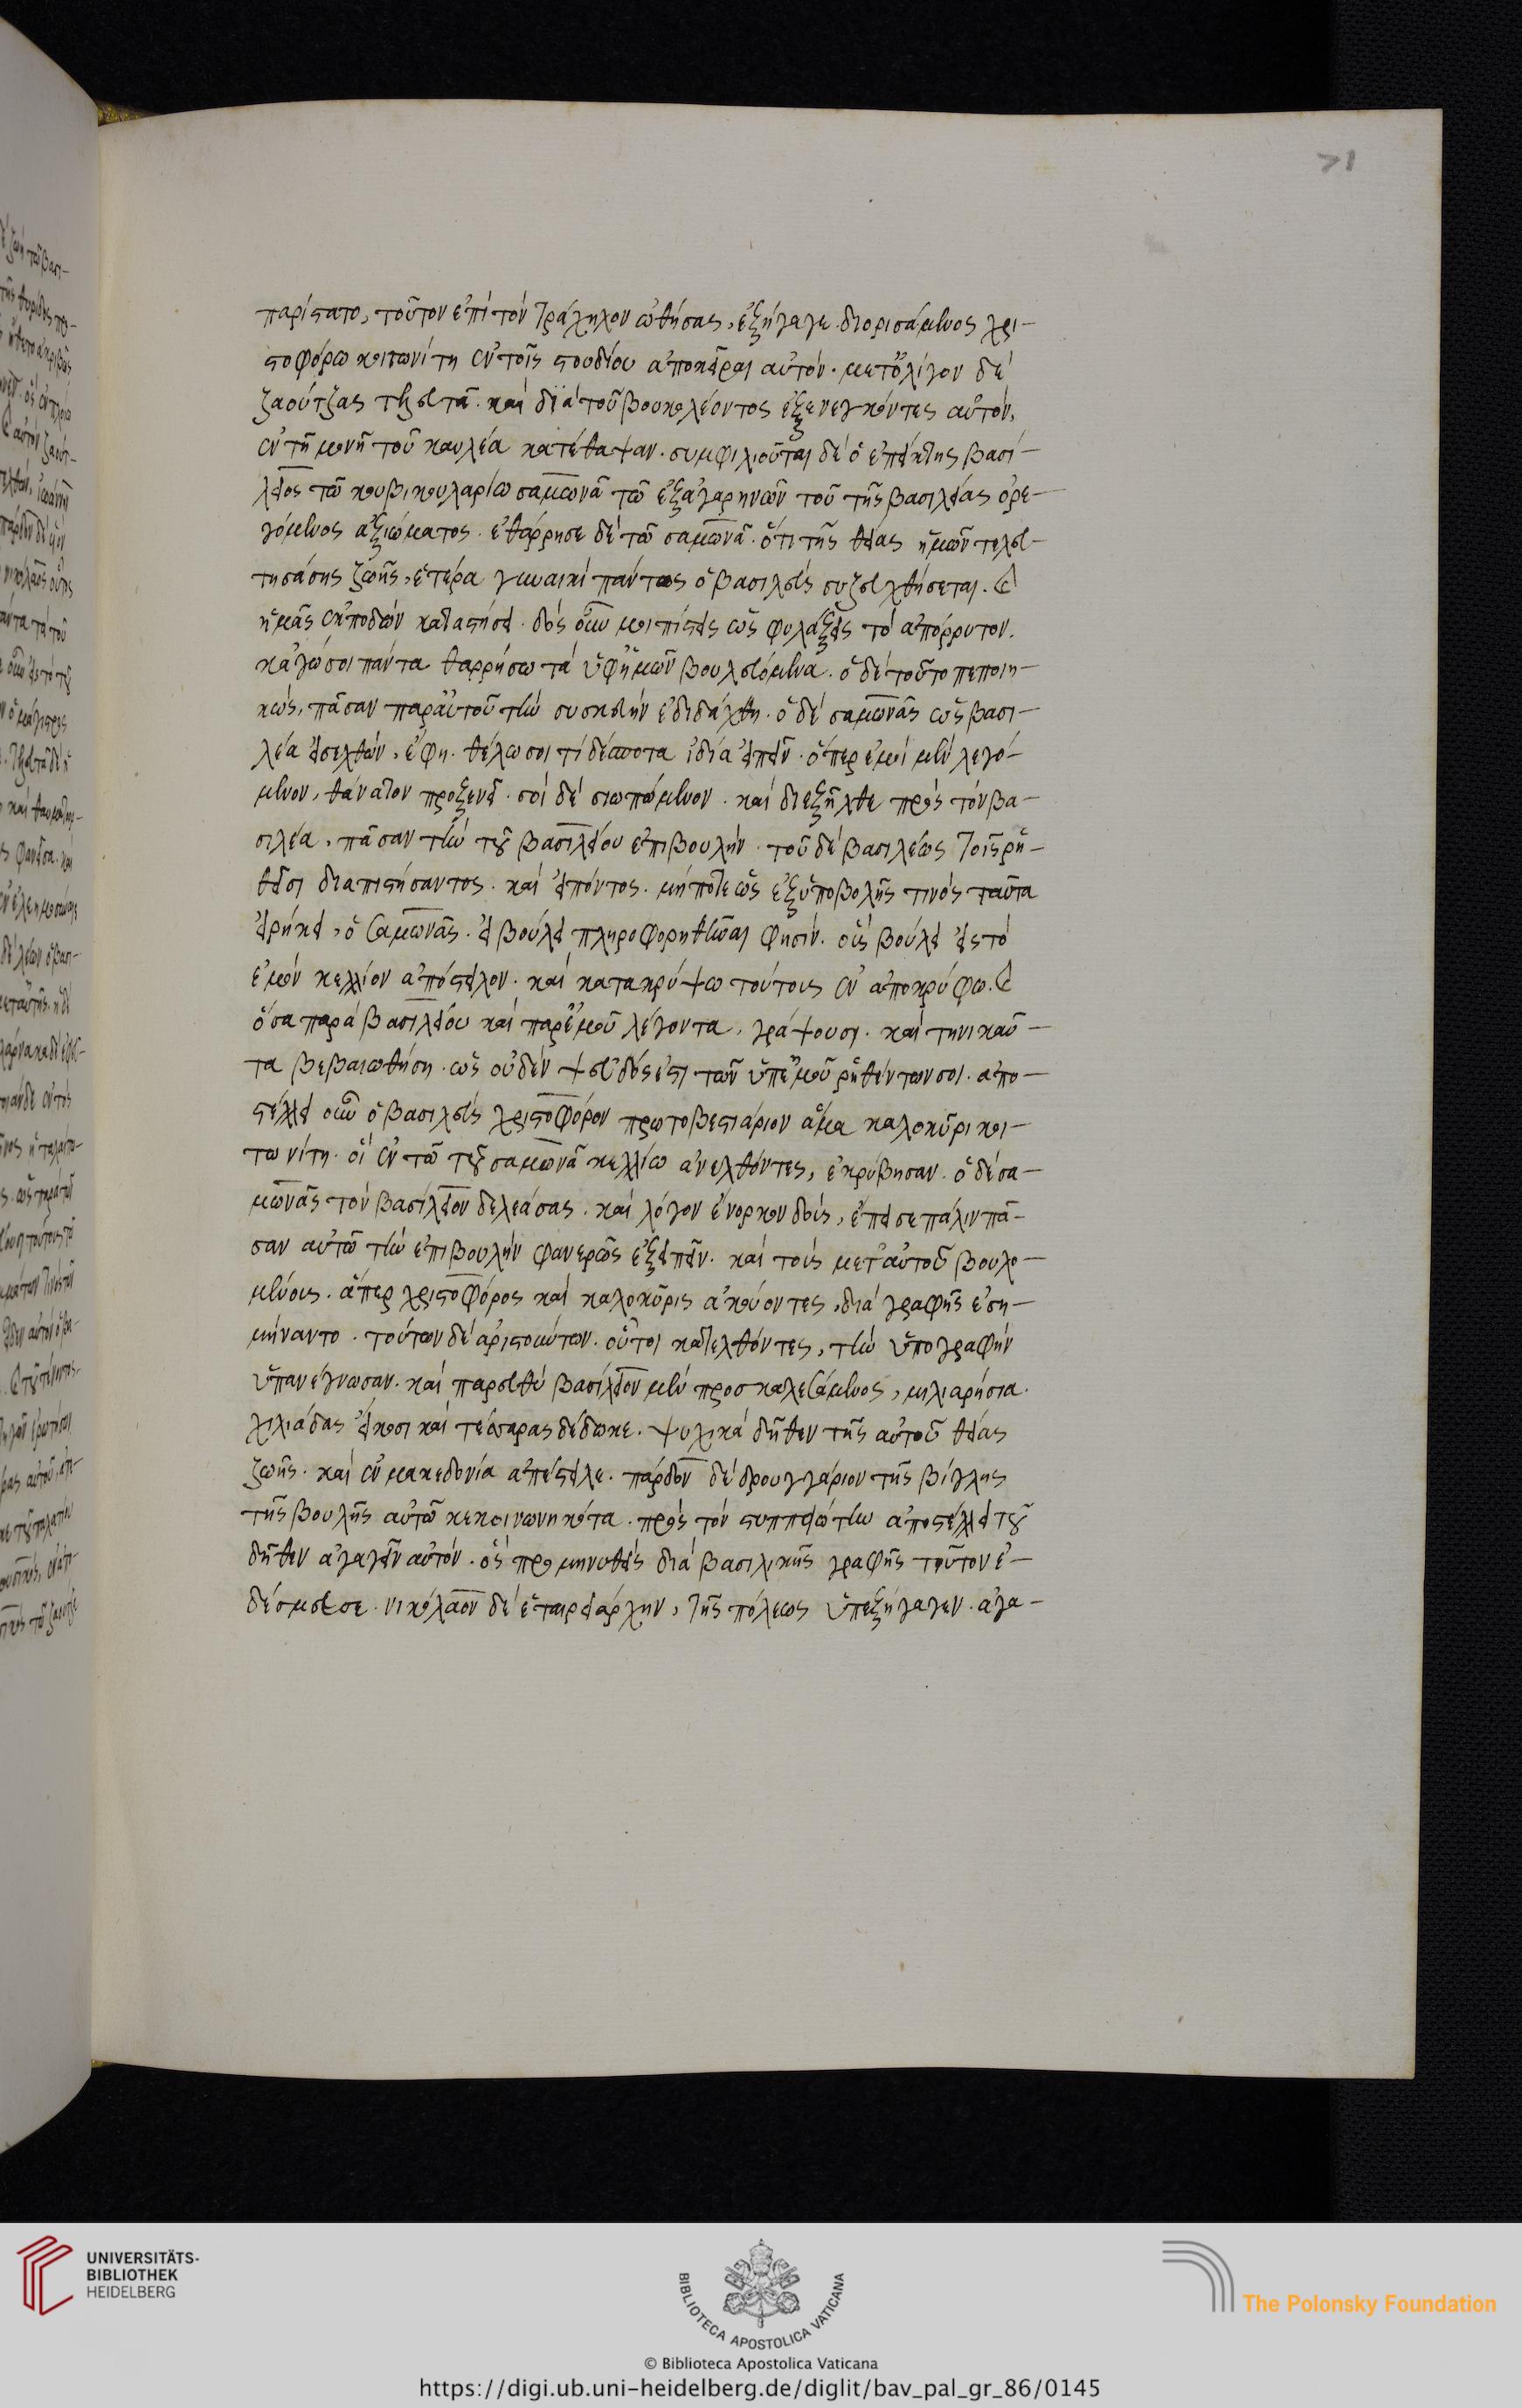 71
παρίστατο, τοῦτον ἐπὶ τὸν τράχηλον ὠθήσας, ἐξήγαγε. διορισάμενος χρι-
στοφόρω κοιτωνίτη ἐν τοῖς στουδίου ἀποκεῖραι αὐτόν. μετ' ὀλίγον δὲ
ζαούτζας τελευτᾶ. καὶ διὰ τοῦ βουκολέοντος ἐξενεγκόντες αὐτόν,
ἐν τῆ μονῆ τοῦ καυλέα κατέθαψαν. συμφιλιοῦται δὲ ὁ ἐπείκτης βασί-
λειος τῶ κουβικουλαρίω σαμωνᾶ τῶ ἐξ ἀγαρηνῶν τοῦ τῆς βασιλείας ὀρε-
γόμενος ἀξιώματος. ἐθάρρησε δὲ τῶ σαμωνᾶ. ὅτι τῆς θείας ἡμῶν τελευ-
τησάσης ζωῆς, ἑτέρα γυναικὶ πάντως ὁ βασιλεὺς συζευχθήσεται. καὶ
ἡμᾶς ἐκποδὼν καταστήσει. δὸς οὖν μοι πίστεις ὡς φυλάξεις τὸ ἀπόρρυτον.
κἀγὼ σοι πάντα θαρρήσω τὰ ὑφ' ἡμῶν βουλευόμενα. ὁ δὲ τοῦτο πεποιη-
κώς, πᾶσαν παρ' αὐτοῦ τὴν συσκευὴν ἐδιδάχθη. ὁ δὲ σαμωνᾶς ὡς βασι-
λέα εἰσελθὼν, ἔφη. θέλω σοι τὶ δέσποτα ἰδία εἰπεῖν. ὅπερ ἐμοὶ μὲν λεγό-
μενον, θάνατον προξενεῖ. σοὶ δὲ σιωπώμενον. καὶ διεξῆλθε πρὸς τὸν βα-
σιλέα, πᾶσαν τὴν τοῦ βασιλείου ἐπιβουλήν. τοῦ δὲ βασιλέως τοῖς ῥη-
θεῖσι διαπιστήσαντος. καὶ εἰπόντος. μήποτε ὡς ἐξ ὑποβολῆς τινὸς ταῦτα
εἰρήκει, ὁ σαμωνᾶς. εἰ βούλει πληροφορηθῆναι φησίν. οὓς βούλει εἰς τὸ
ἐμὸν κελλίον ἀπόστειλον. καὶ κατακρύψω τούτους ἐν ἀποκρύφω. καὶ
ὅσα παρὰ βασιλείου καὶ παρ' ἐμοῦ λέγονται, γράψουσι. καὶ τηνικαῦ-
τα βεβαιωθήση. ὡς οὐδὲν ψεῦδός ἐστι τῶν ὑπ' ἐμοῦ ῥηθέντων σοι. ἀπο-
στέλλει οὖν ὁ βασιλεὺς χριστοφόρον πρωτοβεστιάριον ἅμα καλοκύρι κοι-
τωνίτη. οἳ ἐν τῶ τοῦ σαμωνᾶ κελλίω ἀνελθόντες, ἐκρύβησαν. ὁ δὲ σα-
μωνᾶς τὸν βασίλειον δελεάσας. καὶ λόγον ἔνορκον δοὺς, ἔπεισε πάλιν πᾶ-
σαν αὐτῶ τὴν ἐπιβουλὴν φανερῶς ἐξειπεῖν. καὶ τοὺς μετ' αὐτοῦ βουλο-
μένους. ἅπερ χριστοφόρος καὶ καλοκύρις ἀκούοντες, διὰ γραφῆς ἐση-
μήναντο. τούτων δὲ ἀριστώντων. οὗτοι κατελθόντες, τὴν ὑπογραφὴν
ὑπανέγνωσαν. καὶ παρευθὺ βασίλειον μὲν προσκαλεσάμενος, μιλιαρήσια
χιλιάδας εἴκοσι καὶ τέσσαρας δέδωκε. ψυχικὰ δῆθεν τῆς αὐτοῦ θείας
ζωῆς. καὶ ἐν μακεδονία ἀπέστειλε. πάρδον δὲ δρουγγάριον τῆς βίγλης
τῆς βουλῆς αὐτῶ κεκοινωνηκότα. πρὸς τὸν στυππειώτην ἀποστέλλει τοῦ
δῆθεν ἀγαγεῖν αὐτόν. ὃς προμηνυθεὶς διὰ βασιλικῆς γραφῆς τοῦτον ἐ-
δέσμευσε. νικόλαον δὲ ἑταιρειάρχην, τῆς πόλεως ὑπεξήγαγεν. ἀγα-
UNIVERSITÄTS-
BIBLIOTHEK
HEIDELBERG
BIBLIOTECA APOSTOLICA VATICANA
The Polonsky Foundation
© Biblioteca Apostolica Vaticana
https://digi.ub.uni-heidelberg.de/diglit/bav_pal_gr_86/0145